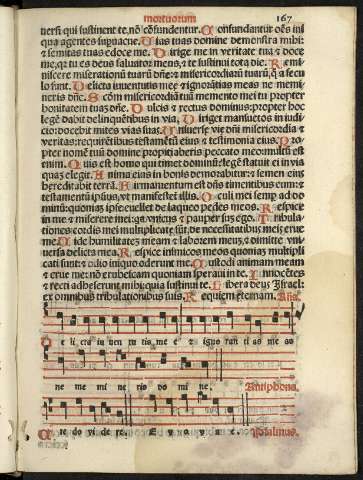 mortuorum 167
uersi qui sustinent te, nō cōfundentur. Cōfundantur oēs ini
qua agentes supuacue. Uias tuas domine demonstra mihi:
& semitas tuas edoce me. Dirige me in veritate tua & doce
me, qr tu es deus saluator meus, & te sustinui tota die. Re
miscere miserationū tuarū dñe: & misericordiarū tuarū, q a secu
lo sunt. Delicta iuuentutis mee & ignorātias meas ne memi
neris dñe. Scōm misericordiā tuā memento mei tu propter
bonitatem tuaz dñe. Dulcis & rectus dominus: propter hoc
legē dabit delinquētibus in via. Diriget mansuetos in iudi
cio: docebit mites vias suas. Uniuerse vie dñi misericordia &
veritas: requirētibus testamētū eius & testimonia eius. Pro
pter nomē tuū domine propiciaberis peccato meo: multū est
enim. Quis est homo qui timet dominū: legē statuit ei in via
quaz elegit. Anima eius in bonis demorabitur: & semen eius
hereditabit terrā. Firmamentum est dñs timentibus eum: &
testamentū ipsius, vt manifestet illis. Oculi mei semp ad do
minū: quoniaz ipse euellet de laqueo pedes meos. Respice
in me & miserere mei: qa vnicus & pauper suz ego. Tribula
tiones cordis mei multiplicate sūt, de necessitatibus meis erue
me. Uide humilitatez meam & laborem meuz, & dimitte vni
uersa delicta mea. Respice inimicos meos quoniaz multipli
cati sunt: & odio iniquo oderunt me. Custodi animam meam
& erue me: nō erubescam quoniam speraui in te. Innocētes
& recti adheserunt mihi: quia sustinui te. Libera deus Israel:
ex omnibus tribulationibus suis. Requiem eternam. Aña.
De li cta iu uen tu tis me e & igno ran ti as me as
ne me mi ne ris do mi ne. Antiphona.
Cre do vi de re. E u o u a e. Psalmus.